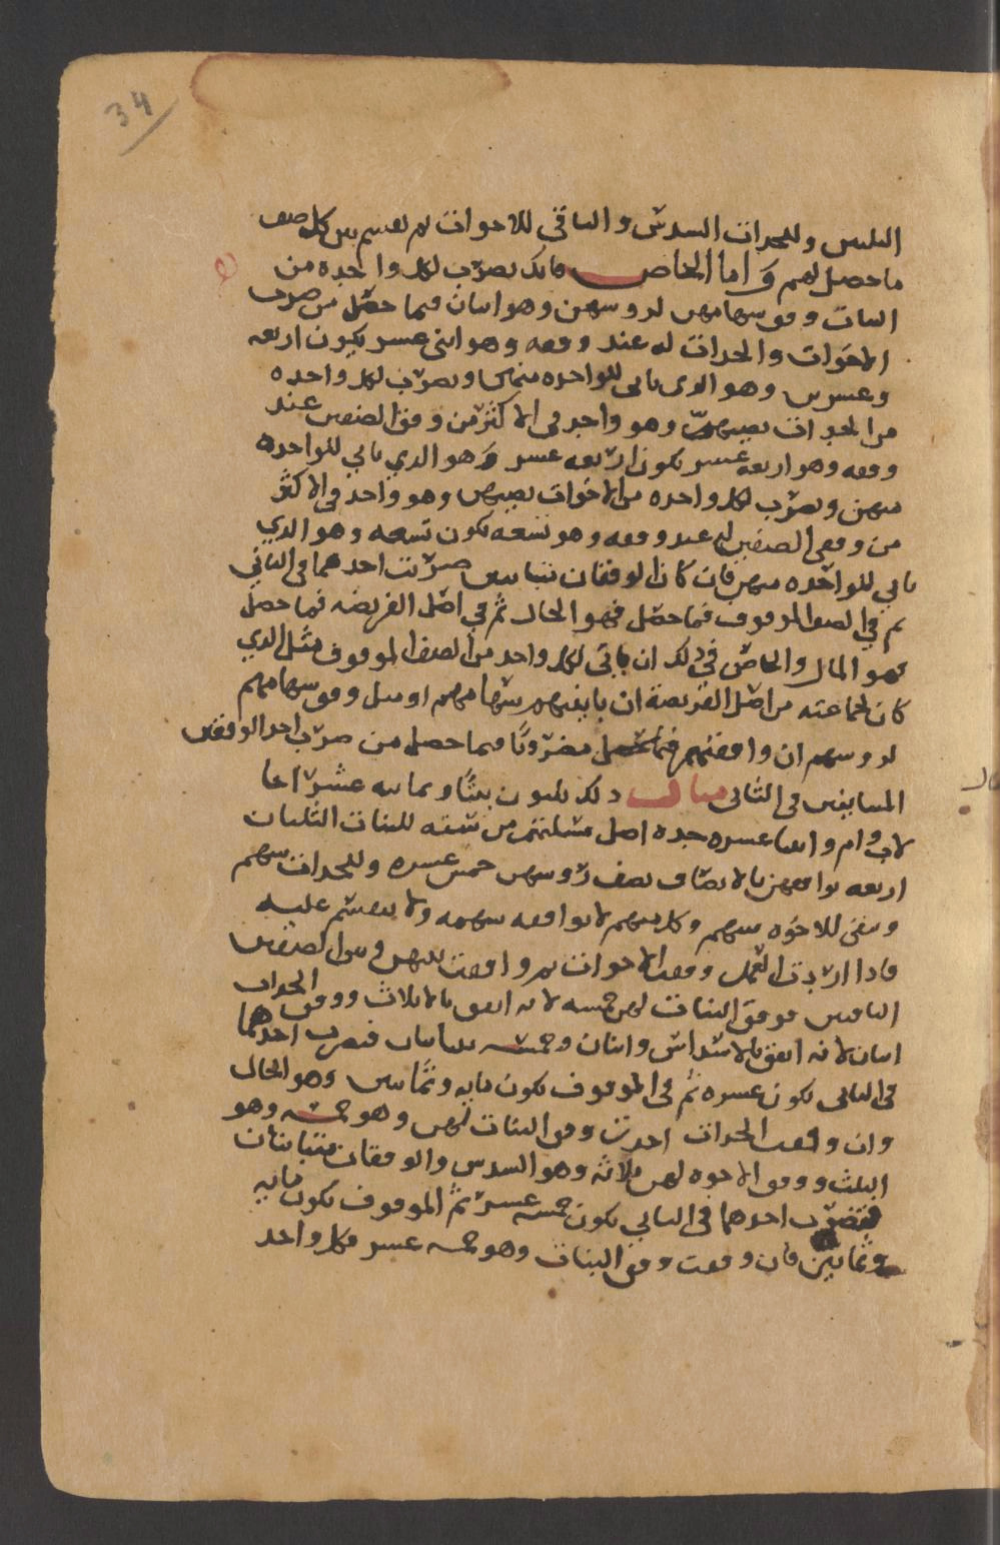 34
الثلثين وللجدات السدس والباقي للاخوات ثم تقسم بين كل صنف
ما حصل لهم واما الخاص فانك تضرب لكل واحده من
البنات وفق سهامهن لروسهن وهو اثنان فيما حصل من ضرب
الاخوات والجدات له عند وفقه وهو اثنى عشر يكون اربعه
وعشرين وهو الذى ياتى للواحده منهن وتضرب لكل واحده
من الجدات نصيبهن وهو واحد فى الاكثر من وفق الصنفين عند
وفقه وهو اربعه عشر يكون اربعه عشر وهو الذي ياتي للواحده
منهن وتضرب لكل واحده من الاخوات نصيبهن وهو واحد في الاكثر
من وفقى الصنفين له عند وفقه وهو تسعه يكون تسعه وهو الذي
ياتي للواحده منهن فان كان الوفقان متباينين ضربت احدهما فى الثاني
ثم في الصنف الموقوف فما حصل فهو الحال ثم في اصل الفريضه فما حصل
فهو المال والخاص في ذلك ان ياتى لكل واحد من الصنف الموقوف مثل الذي
كان لجماعته من اصل الفريضة ان باينهم سهامهم او مثل وفق سهامهم
لروسهم ان وافقتهم فما حصل مضروبًا فيما حصل من ضرب احد الوفقين
المتباينين فى الثانى مثال ذلك ثلثون بنتًا وثمانيه عشر اخا
لاب وام واثنا عشره جده اصل مسئلتهم من سته للبنات الثلثان
اربعه توافقهن بالانصاف نصف روسهن خمس عشره وللجدات سهم
ويبقى للاخوه سهم وكل سهم لا يوافقه سهمه ولا ينقسم عليه
فاذا اردت العمل وقفت الاخوات ثم وافقت بينهن وبين الصنفين
الباقيين فوفق البنات لهن خمسه لانه اتفق بالاثلاث ووفق الجدات
اثنان لانه اتفق بالاسداس واثنان وخمسه متباينان فتضرب احدهما
فى الثانى يكون عشره ثم فى الموقوف يكون مايه وثمانين وهو الحال
وان وقفت الجدات اخذت وفق البنات لهن وهو خمسه وهو
الثلث ووفق الاخوه لهن ثلاثه وهو السدس والوفقان متباينان
فتضرب احدهما فى الثاني يكون خمسه عشر ثم الموقوف يكون مايه
وثمانين فان وقفت وفق البنات وهو خمسه عشر فكل واحد